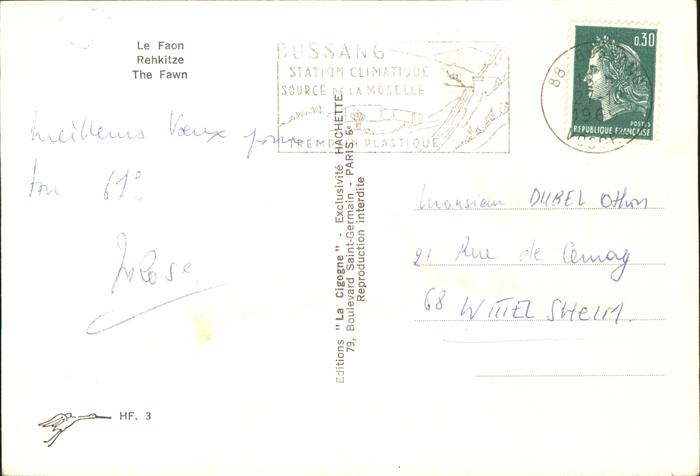 Le Faon
Rehkitze
The Fawn
BUSSANG
STATION CLIMATIQUE
SOURCE DE LA MOSELLE
TREMPLIN PLASTIQUE
0,30
POSTES
REPUBLIQUE FRANÇAISE
88
196
Meilleurs Vœux pour
ton 61°
Monsieur DUREL Othon
21 Rue de Cernay
68 WITTELSHEIM.
Editions "La Cigogne" - Exclusivité HACHETTE
79, Boulevard Saint-Germain - PARIS 6e
Reproduction interdite
HF. 3